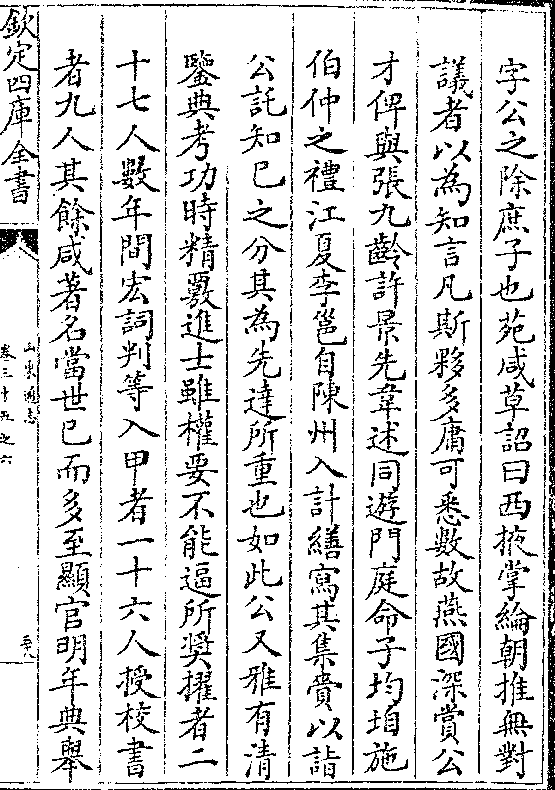 字公之除庶子也苑咸草詔曰西掖掌綸朝推無對
議者以為知言凡斯夥多庸可悉數故燕國深賞公
才俾與張九齡許景先韋述同遊門庭命子均垍施
伯仲之禮江夏李邕自陳州入計繕寫其集賷以詣
公託知己之分其為先達所重也如此公又雅有清
鑒典考功時精覈進士雖權要不能逼所奨擢者二
十七人數年間宏詞判等入甲者一十六人授校書
者九人其餘咸著名當世已而多至顯官明年典舉
欽定四庫全書
山東通志
卷三十五之六